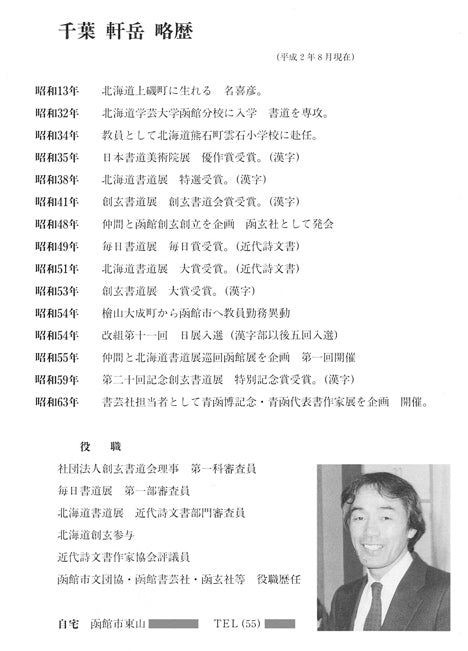 千葉 軒岳 略歴
(平成2年8月現在)
昭和13年 北海道上磯町に生れる 名喜彦。
昭和32年 北海道学芸大学函館分校に入学 書道を専攻。
昭和34年 教員として北海道熊石町雲石小学校に赴任。
昭和35年 日本書道美術院展 優作賞受賞。(漢字)
昭和38年 北海道書道展 特選受賞。(漢字)
昭和41年 創玄書道展 創玄書道会賞受賞。(漢字)
昭和48年 仲間と函館創玄創立を企画 函玄社として発会
昭和49年 毎日書道展 毎日賞受賞。(近代詩文書)
昭和51年 北海道書道展 大賞受賞。(近代詩文書)
昭和53年 創玄書道展 大賞受賞。(漢字)
昭和54年 檜山大成町から函館市へ教員勤務異動
昭和54年 改組第十一回 日展入選(漢字部以後五回入選)
昭和55年 仲間と北海道書道展巡回函館展を企画 第一回開催
昭和59年 第二十回記念創玄書道展 特別記念賞受賞。(漢字)
昭和63年 書芸社担当者として青函博記念・青函代表書作家展を企画 開催。
役 職
社団法人創玄書道会理事 第一科審査員
毎日書道展 第一部審査員
北海道書道展 近代詩文書部門審査員
北海道創玄参与
近代詩文書作家協会評議員
函館市文団協・函館書芸社・函玄社等 役職歴任
自宅 函館市東山 TEL(55)